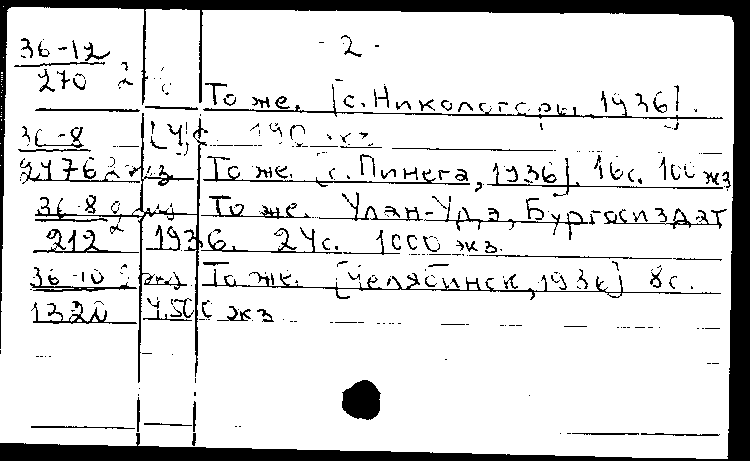 - 2 -
36-12
270 То же. [с. Никологоры, 1936].
36-8 [4]с. 190 экз.
2476 2 экз То же. [с. Пинега, 1936]. 16с. 100 экз
36-8 2 экз То же. Улан-Удэ, Бургосиздат
212 1936. 24с. 1000 экз.
36-10 2 экз То же. [Челябинск, 1936] 8с.
1320 4.500 экз